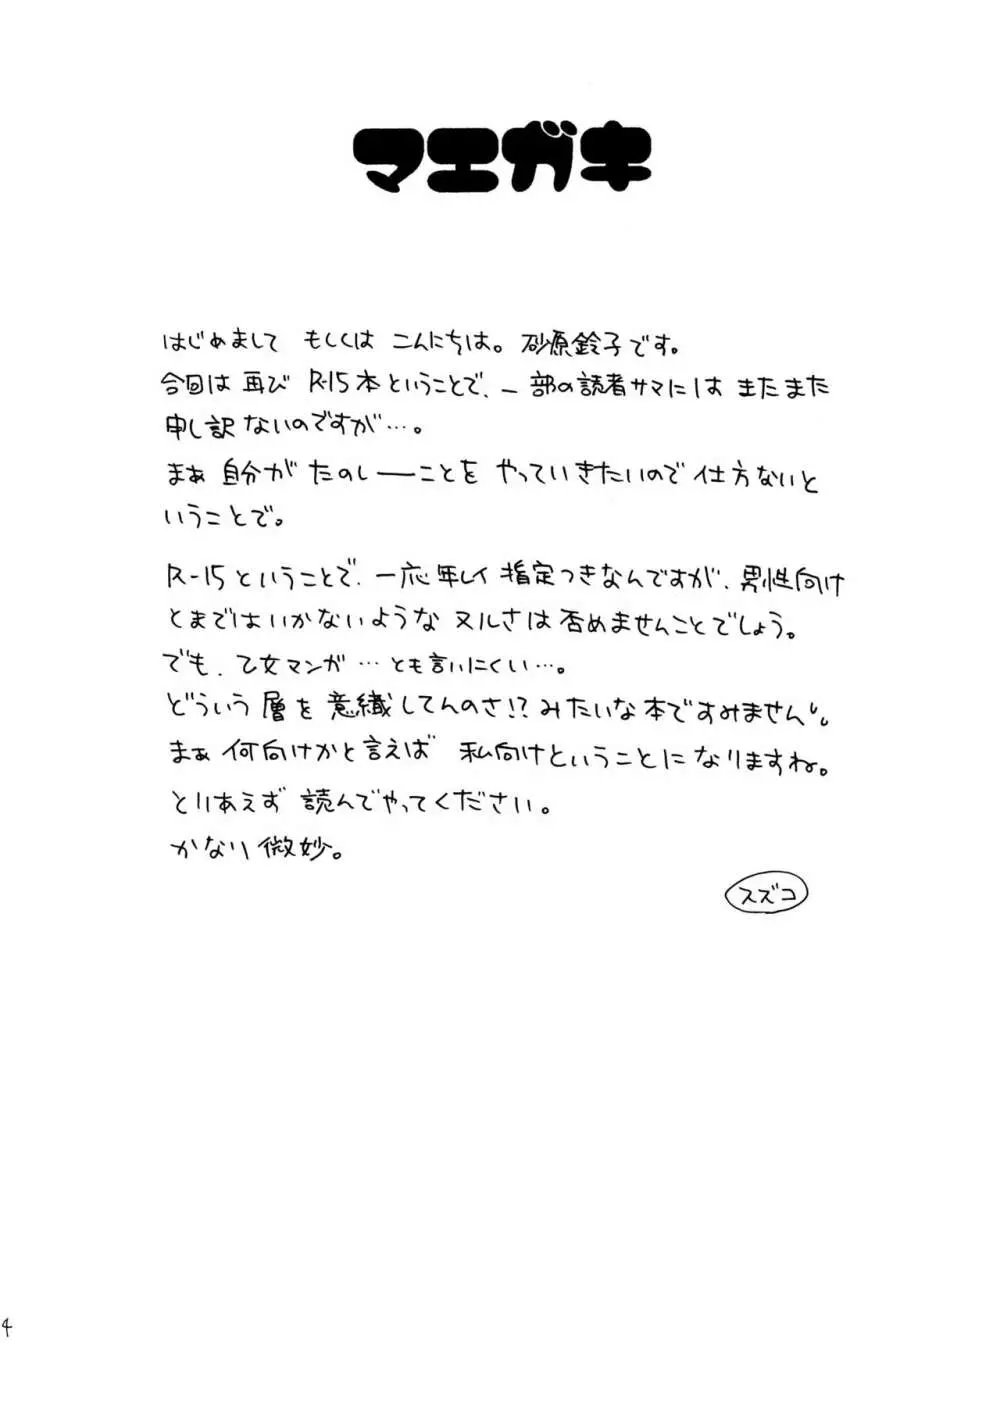 マエガキ
はじめまして もしくは こんにちは。砂原鈴子です。
今回は再び R-15本ということで、一部の読者サマにはまたまた
申し訳ないのですが…。
まぁ自分がたのしーことをやっていきたいので仕方ないと
いうことで。
R-15ということで、一応年レイ指定つきなんですが、男性向け
とまではいかないようなヌルさは否めませんことでしょう。
でも、乙女マンガ…とも言いにくい…。
どういう層を意識してんのさ!?みたいな本ですみません。
まぁ何向けかと言えば 私向けということになりますね。
とりあえず読んでやってください。
かなり微妙。
スズコ
4